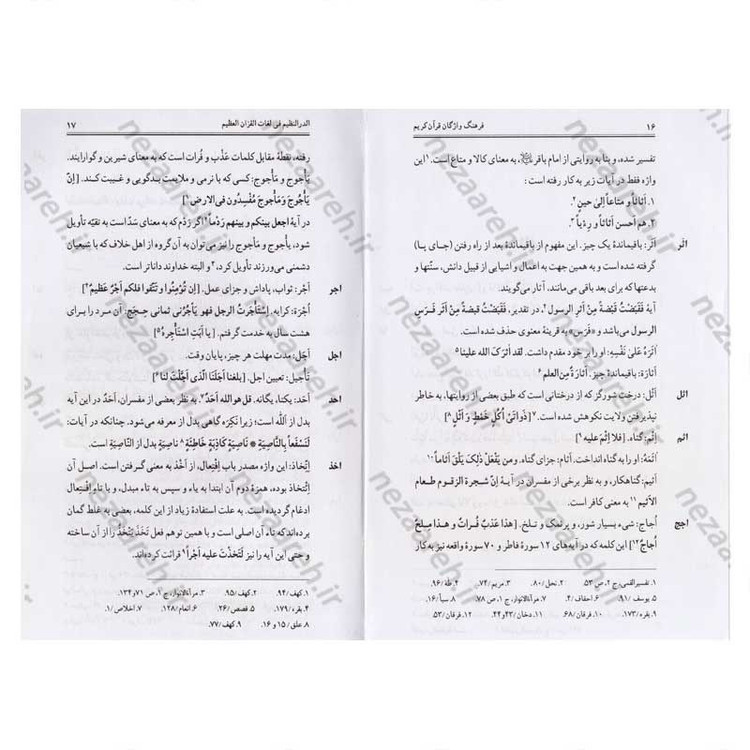 ۱۶ فرهنگ واژگان قرآن کریم
تفسیر شده، و بنا به روایتی از امام باقر به معنای کالا و متاع است.۱ این
واژه فقط در آیات زیر به کار رفته است:
۱. أثاثاً و متاعاً إلیٰ حینٍ۲.
۲. هم أحسن أثاثاً و رِءْیاً۳.
اثر أَثَر: باقیماندۀ یک چیز. این مفهوم از باقیماندۀ بعد از راه رفتن (جای پا)
گرفته شده است و به همین جهت به اعمال و اشیایی از قبیل دانش، سنّتها و
بدعتها که برای بعد باقی می‌مانند، آثار می‌گویند.
آیۀ فَقَبَضْتُ قَبْضَةً مِنْ أَثَرِ الرسول۴، در تقدیر، فَقَبَضْتُ قبضةً مِنْ أَثَرِ فَرَسِ
الرسول می‌باشد و «فَرَس» به قرینۀ معنوی حذف شده است.
آثَرَهُ عَلیٰ نَفْسِهِ: او را بر خود مقدم داشت. لقد آثرک الله علینا۵
أثارَة: باقیماندۀ چیز. أثارَةٍ مِنَ العلم۶
اثل أَثْل: درخت شورگز که از درختانی است که طبق بعضی از روایتها، به خاطر
نپذیرفتن ولایت نکوهش شده است.۷ [ذَواتَیْ أُکُلٍ خَمْطٍ وَ أَثْلٍ۸]
اثم إِثْم: گناه. [فلا إِثْمَ علیه۹]
أَثَمَهُ: او را به گناه انداخت. أثام: جزای گناه. ومن یَفْعَلْ ذلِکَ یَلْقَ أَثاماً۱۰
أَثیم: گناهکار، و به نظر برخی از مفسران در آیۀ إِنَّ شجرةَ الزقوم طعام
الأثیم۱۱ به معنی کافر است.
اجج أُجاج: شیء بسیار شور، و پرنمک و تلخ. [هذا عَذْبٌ فُراتٌ و هذا مِلحٌ
أُجاجٌ۱۲] این کلمه که در آیه‌های ۱۲ سورۀ فاطر و ۷۰ سورۀ واقعه نیز به کار
۱. تفسیرالقمی، ج ۲، ص ۵۳. ۲. نحل/۸۰. ۳. مریم/۷۴. ۴. طه/۹۶.
۵. یوسف/۹۱. ۶. احقاف/۴. ۷. مرآةالانوار، ج ۱، ص ۷۸. ۸. سبأ/۱۶.
۹. بقره/۱۷۳. ۱۰. فرقان/۶۸. ۱۱. دخان/۴۳و۴۴. ۱۲. فرقان/۵۳.
الدر النظیم فی لغات القرآن العظیم ۱۷
رفته، نقطۀ مقابل کلمات عَذْب و فُرات است که به معنای شیرین و گوارایند.
یَأجوج و مَأجوج: کسی که با نرمی و ملایمت بدگویی و غیبت کند. [إنّ
یَأْجُوجَ وَمَأْجوجَ مُفْسِدُون فی الارض۱]
در آیۀ اجعل بینکم و بینهم رَدْماً۲ اگر رَدْم که به معنای سَدّ است به تقیّه تأویل
شود، یأجوج و مأجوج را نیز می‌توان به آن گروه از اهل خلاف که با شیعیان
دشمنی می‌ورزند تأویل کرد،۳ و البته خداوند داناتر است.
اجر أَجْر: ثواب، پاداش و جزای عمل. [إن تُؤْمِنُوا و تَتَّقوا فلکم أَجْرٌ عظیمٌ۴]
أُجْرَة: کرایه. إِسْتأجَرْتُ الرجل فهو یَأْجُرُنی ثمانی حِجَج: آن مرد را برای
هشت سال به خدمت گرفتم. [یا أَبَتِ اسْتَأْجِرْهُ۵]
اجل أَجَل: مدت مهلت هر چیز، پایان وقت.
تَأْجیل: تعیین اجل. [بلغنا أجلَنَا الَّذی أَجَّلْتَ لنا۶]
احد أَحَد: یکتا، یگانه. قل هو الله أحَدٌ۷. به نظر بعضی از مفسران، أَحَدٌ در این آیه
بدل از الله است؛ زیرا نکِرَه گاهی بدل از معرفه می‌شود. چنانکه در آیات:
لَنَسْفَعاً بِالنَّاصِیَةِ * ناصِیَةٍ کاذِبَةٍ خاطِئَةٍ۸ ناصِیَةٍ بدل از النّاصِیَةِ است.
اخذ إِتِّخاذ: این واژه مصدر باب إِفْتِعال، از أَخْذ به معنی گرفتن است. اصل آن
إئْتِخاذ بوده، همزۀ دوم آن ابتدا به یاء و سپس به تاء مبدل، و با تاء افتعال
ادغام گردیده است. به علت استفادۀ زیاد از این کلمه، بعضی به غلط گمان
برده‌اند که تاء آن اصلی است و با همین توهم فعل تَخَذَ یَتْخَذُ را از آن ساخته
و حتی این آیه را نیز لَتَخَذْتَ علیه أجراً۹ قرائت کرده‌اند.
۱. کهف/۹۴. ۲. کهف/۹۵. ۳. مرآةالانوار، ج ۱، ص ۷۱و۱۳۴.
۴. بقره/۱۷۹. ۵. قصص/۲۶. ۶. انعام/۱۲۸. ۷. اخلاص/۱.
۸. علق/۱۵ و ۱۶. ۹. کهف/۷۷.
nezaareh.ir